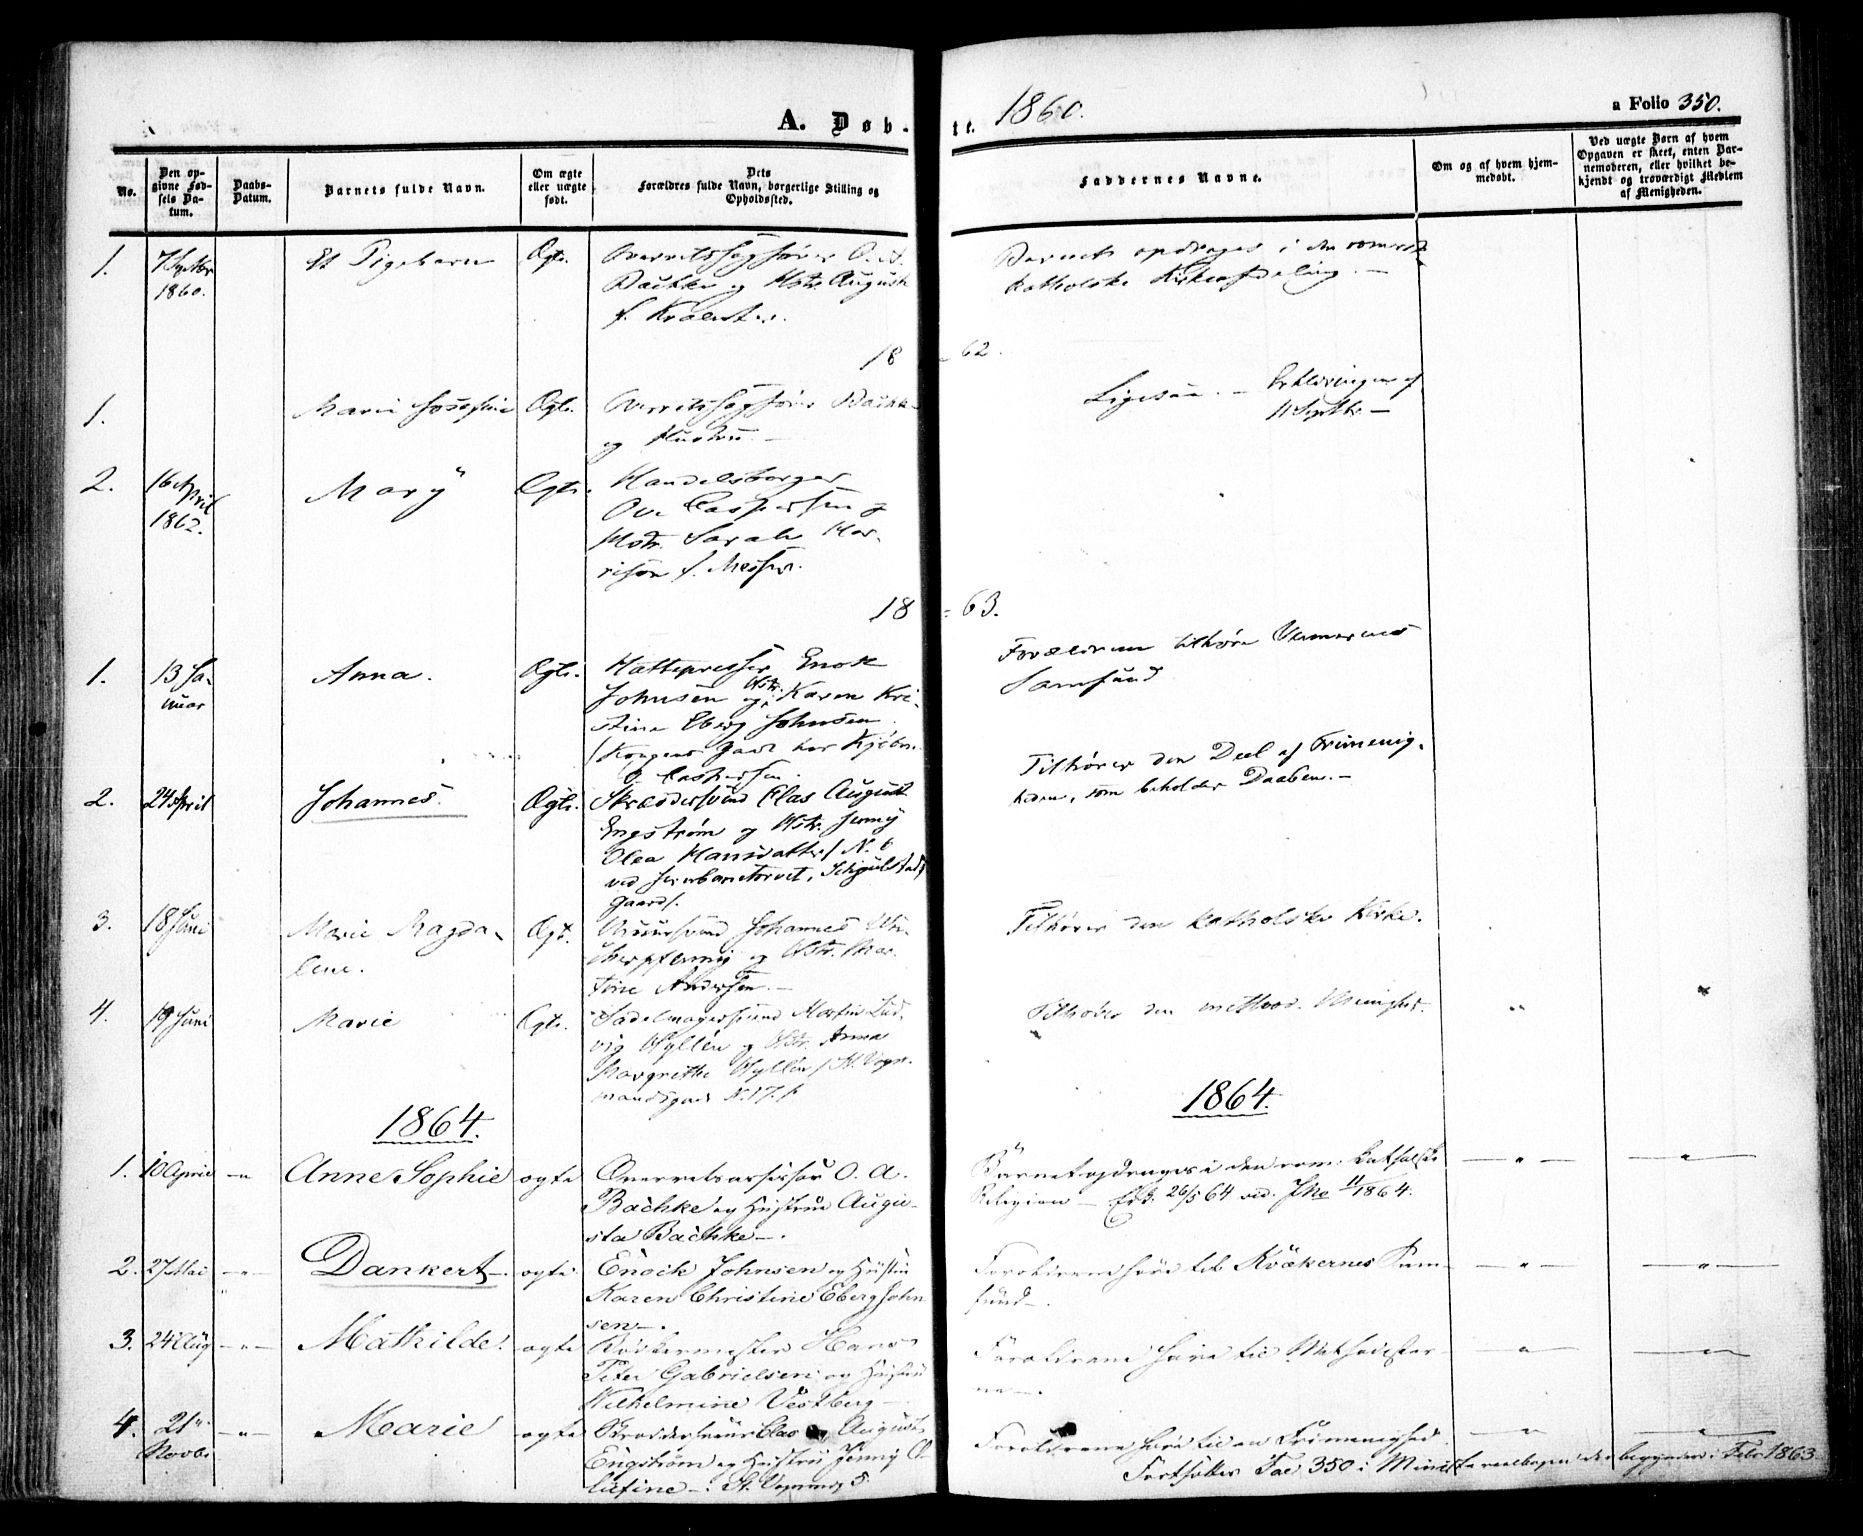 A. Døb-
te. 1860.
a Folio 350.
No.
Den op-
givne Fød-
sels Da-
tum.
Daabs-
Datum.
Barnets fulde Navn.
Om ægte
eller uægte
født.
Dets
Forældres fulde Navn, borgerlige Stilling og
Opholdssted.
Faddernes Navne.
Om og af hvem hjem-
medøbt.
Ved uægte Børn af hvem
Opgaven er skeet, enten Bar-
nemoderen, eller hvilket be-
kjendt og troværdigt Medlem
af Menigheden.
1. 7 Septbr
1860.
Et Pigebarn
Ægte.
Overretssagfører O. A.
Bachke og Hstr. Auguste
f.
Barnet opdrages i den romersk
katholske Kirkeafdeling. –
18
62.
1. Marie Josefine Ægte. Overretssagfører Bachke
og Hustru. –
Ligesaa. – Erklæringen af
11 Septbr –
2. 16 April
1862.
Mary Ægte. Handelsborger
Ove Caspersen og
Hstr. Sarah Har-
rison f. Messer.
18
63.
1. 13 Ja-
nuar
Anna. Ægte. Hattepresser Enok
Johnsen og Hstr. Karen Kri-
stine Eberg Johnsen
Forældrene tilhøre Vennernes
Samfund
2. 24 April Johannes. Ægte. Skræddersvend Clas August
Engstrøm og Hstr. Jenny
Olea Hansdatter / N. 6
ved Jernbanetorvet,
gaard/.
Tilhører den Deel af Frimenig-
heden, som beholder Daaben. –
3. 18 Juni Marie Magda-
lene.
Ægt. Johannes
og Hstr. Mar-
tine Andersen. –
Tilhører den katholske Kirke.
4. 19 Juni Marie Ægte. Sadelmagersvend Martin Lud-
vig Hyllén og Hstr. Anna
Margrethe Hyllén / St. Vogn-
mandsgade N. 17./
Tilhører den methød. Menighed. "
1864.
1864.
1. 10 April – " Anne Sophie ægte Overretsassessor O. A.
Bachke og Hustrue Augu-
sta Bachke –.
Barnet opdrages i den rom: Katholske
Religion – Erkl. 26/5 64 ved. Jke 11/1864.
— " — — " —
2. 27 Mai – " – Dankert –. ægte Enock Johnsen og Hustru
Karen Christine Eberg John
sen –.
Forældrene høre til Kvækernes Sam-
fund –.
— " — — " —
3. 24 Aug – " – Mathilde. ægte Bødkermester Hans
Peter Gabrielsen og Hustru
Wilhelmine Vestberg –
Forældrene høre til Methodister-
ne –.
— " — — " —
4. 21
Novbr
– " – Marie ægte Skræddersvend Clas August
Engstrøm og Hustru Jenny O-
lufine –. St. Vognmdg 5
Forældrene høre til en Frimenighed
— " — — " —
Fortsættes Fol 350 i Ministerialbogen der begynder i Febr 1863